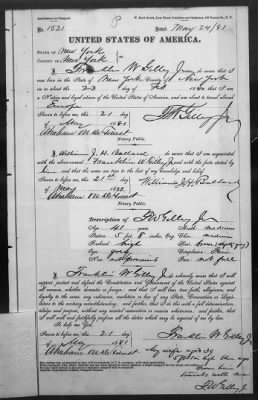 8
No. 1521
May 24/81
UNITED STATES OF AMERICA.
STATE OF New York
COUNTY OF New York
I, Franklin W Gilley Jr, do swear that I
was born in the State of New York, County of New York
on about the 23 day of
that I am
a citizen of the United States of America, and am about to travel abroad
Europe
Sworn to before me, this 21
day of May 1881
F W Gilley Jr
Abraham
Notary Public.
I, William J. H. Ballard, do swear that I am acquainted
with the above named Franklin W Gilley Jr and with the facts stated by
him and that the same are true to the best of my knowledge and belief.
Sworn to before me, this 21st
day of May 1881
William J H Ballard
Abraham
Notary Public.
Description of F W Gilley Jr
Age 41 years
Mouth medium
Stature 5 ft 8 inches
Chin medium
Forehead high
Hair brown
Eyes
Complexion
Nose
Face not full
I, Franklin W Gilley Jr, do solemnly swear that I will
support, protect and defend the Constitution and Government of the United States against
all enemies, whether domestic or foreign; and that I will bear true faith, allegiance,
and loyalty to the same, any ordinance, resolution or law of any State, Convention or Legislature
to the contrary notwithstanding; and further, that I do this with a full determination,
pledge and purpose, without any mental reservation or evasion whatsoever; and further, that
I will well and faithfully perform all the duties which may be required of me by law.
So help me God.
Sworn to before me, this 21 day
of May 1881
Franklin W Gilley Jr
Abraham
Notary Public.
My wife age 39
5 feet high blue eyes
brown hair
F W Gilley Jr